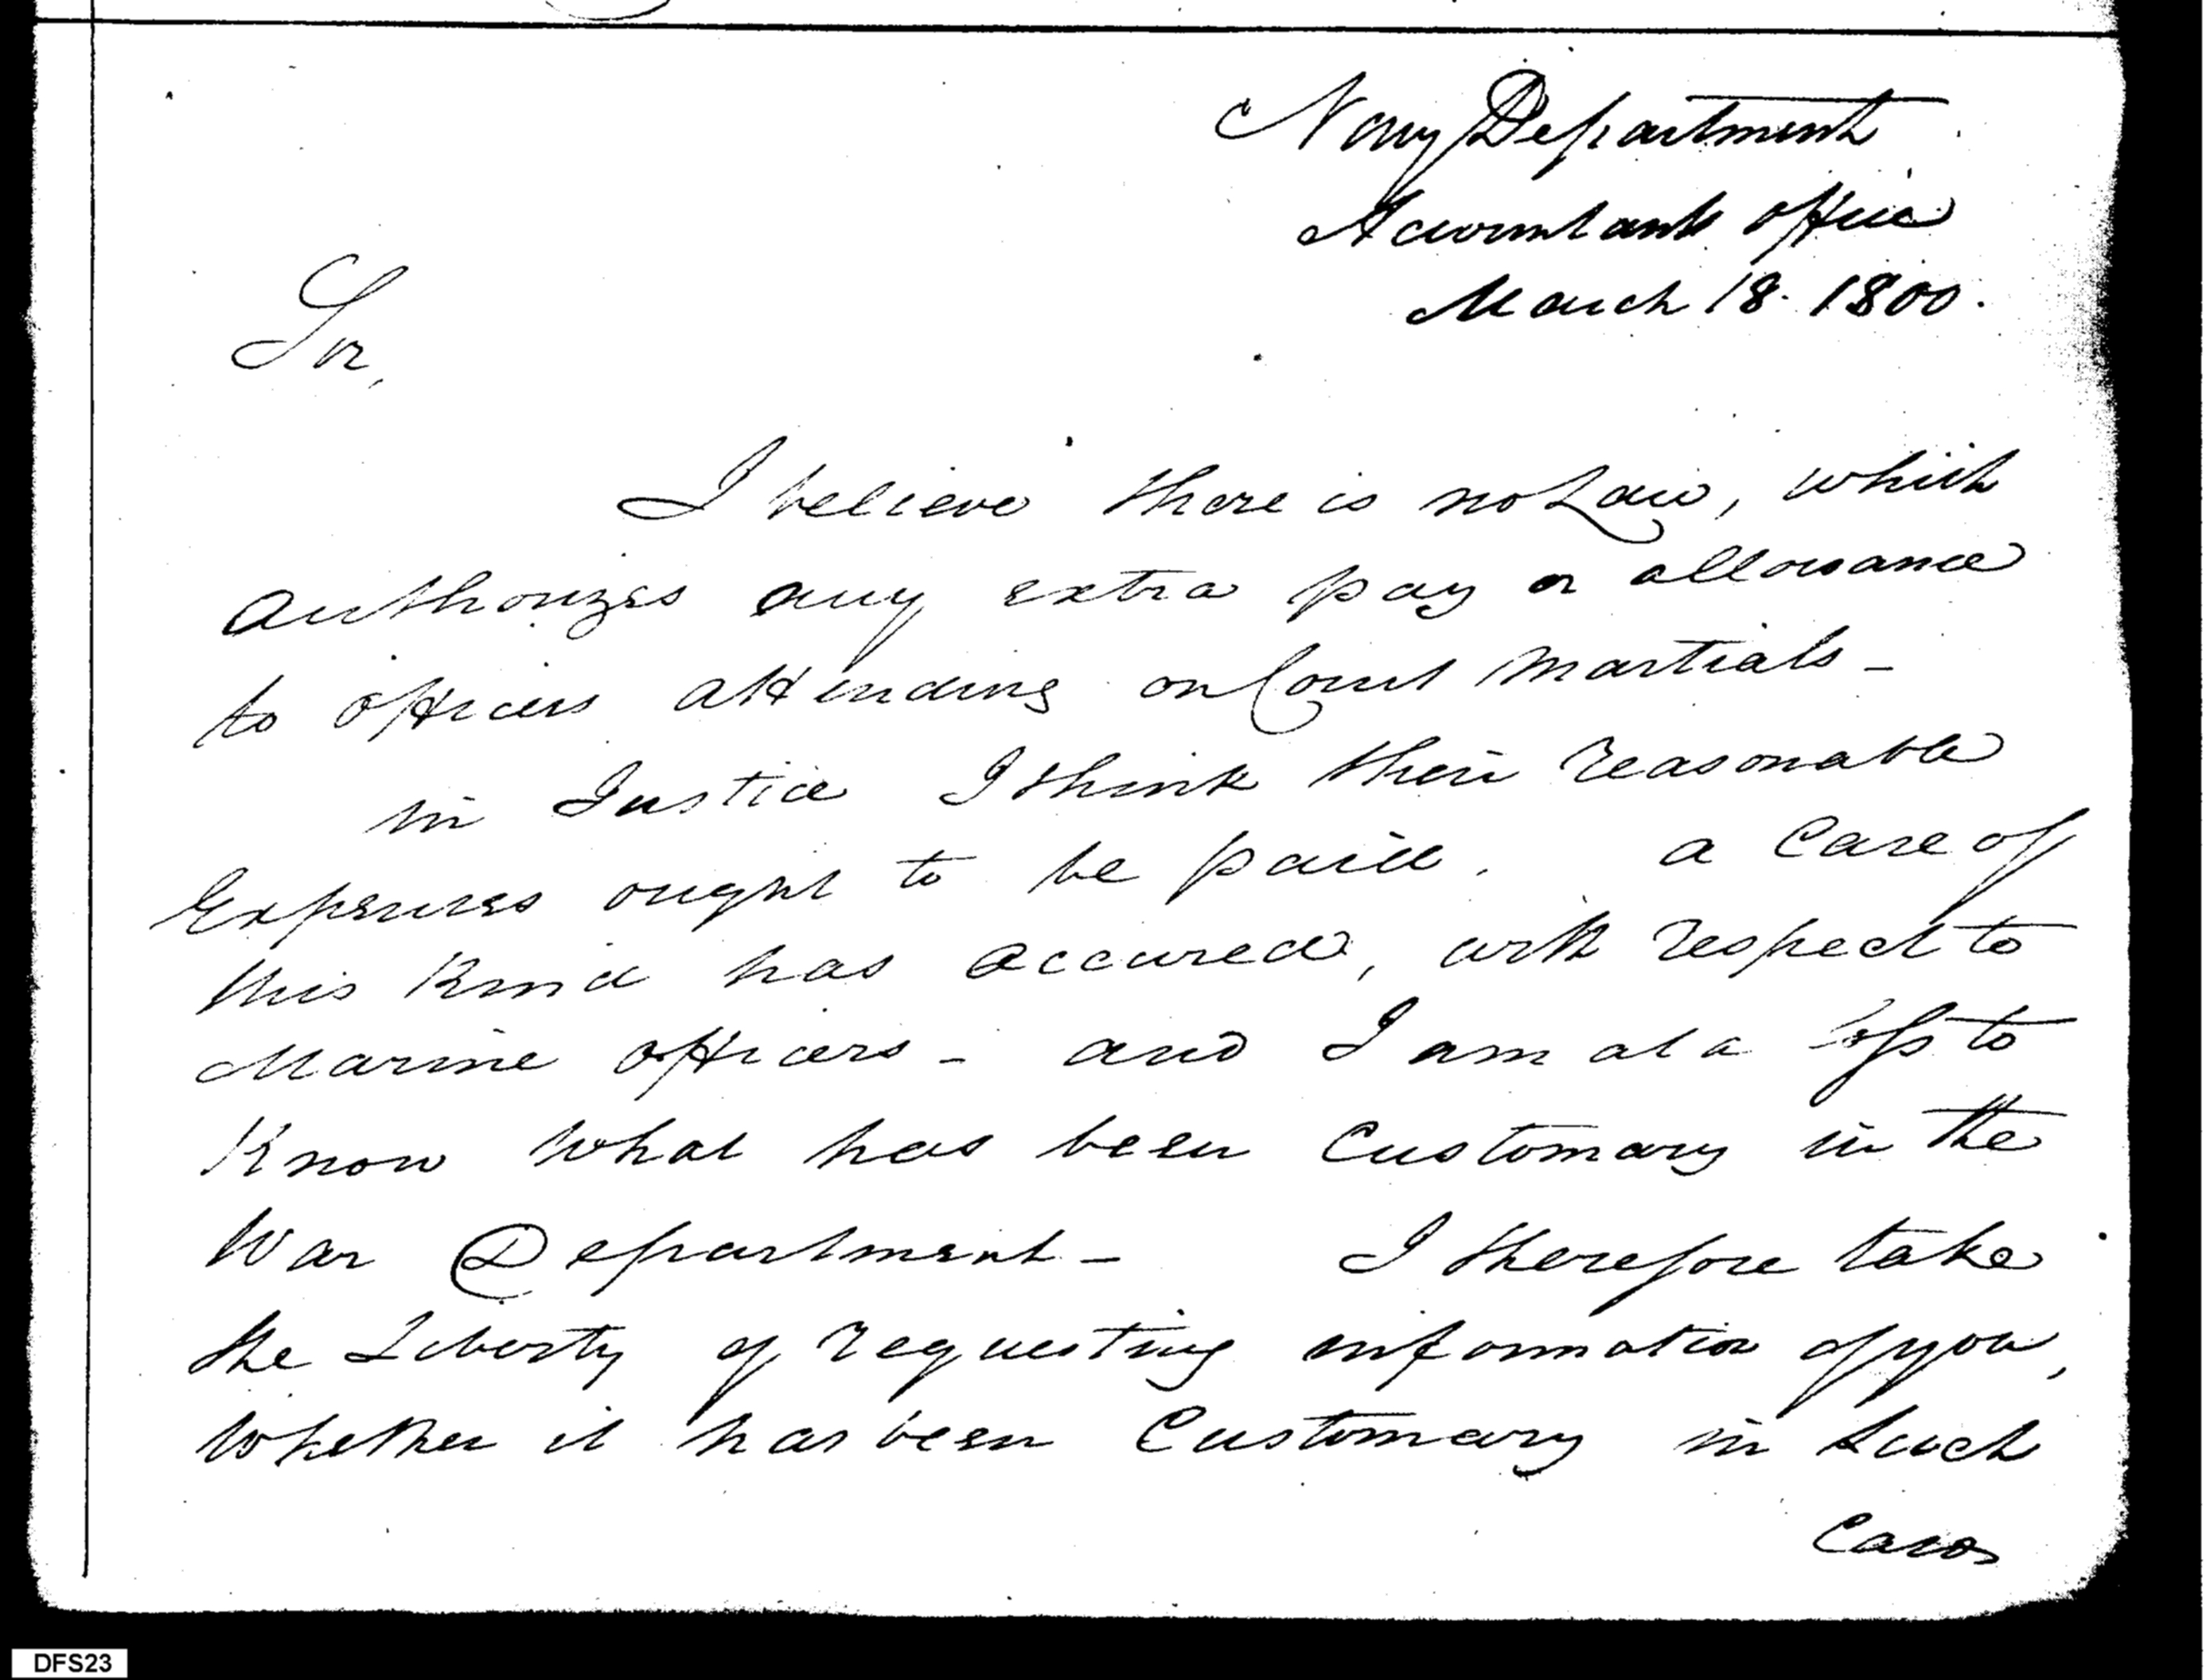 Navy Department
Accountants office
March 18. 1800.
Sir,
I believe there is no Law, which
authorizes any extra pay or allowance
to officers attending on Court Martials -
in Justice I think their reasonable
Expenses ought to be paid. a Case of
this Kind has accured, with respect to
Marine officers - and I am at a loss to
Know what has been Customary in the
War Department - I therefore take
the Liberty of requesting information of you,
Whether it has been Customary in such
Cases
DFS23